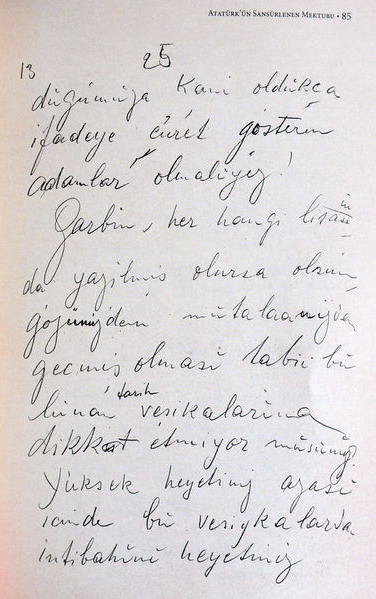 ATATÜRK'ÜN SANSÜRLENEN MEKTUBU • 85
13
25
düğümüze kani oldukca
ifadeye cür'et gösterin
adamlar olmaliyiz!
Garbin, her hangi lisanin
da yazilmis olursa olsun
gözünüzden mütalaanizdan
gecmis olmasi tabii bu
lunan tarih vesikalarina
dikkat etmiyor musunuz
Yüksek heyetiniz azasi
icinde bu vesiykalardan
intibahini heyetiniz